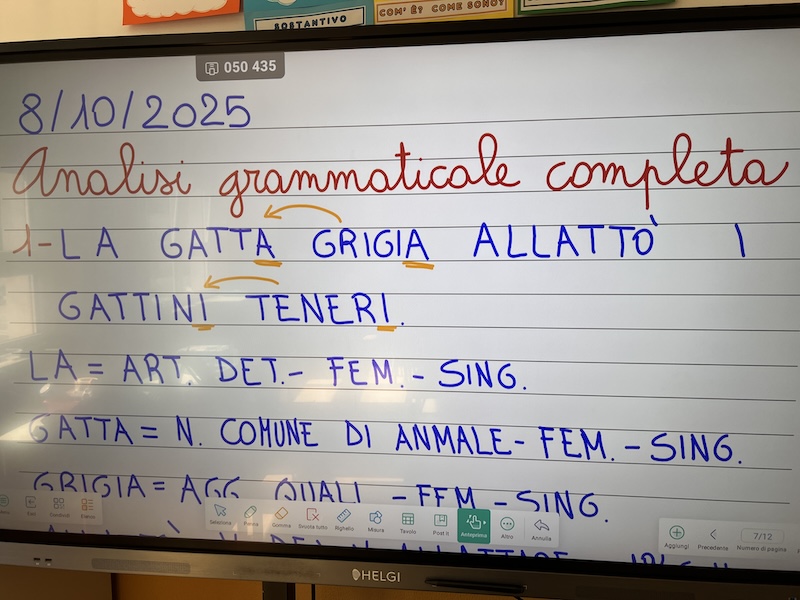 SOSTANTIVO
COM'È? COME SONO?
050 435
8/10/2025
Analisi grammaticale completa
1-LA GATTA GRIGIA ALLATTÒ I
GATTINI TENERI.
LA = ART. DET.- FEM.- SING.
GATTA = N. COMUNE DI ANMALE- FEM. - SING.
GRIGIA = AGG. QUALI - FEM - SING.
Seleziona Penna Gomma Svuota tutto Righello Misura Tavolo Post it Anteprima Altro Annulla
Aggiungi Precedente 7/12 Numero di pagine
ALLATTARE
HELGI